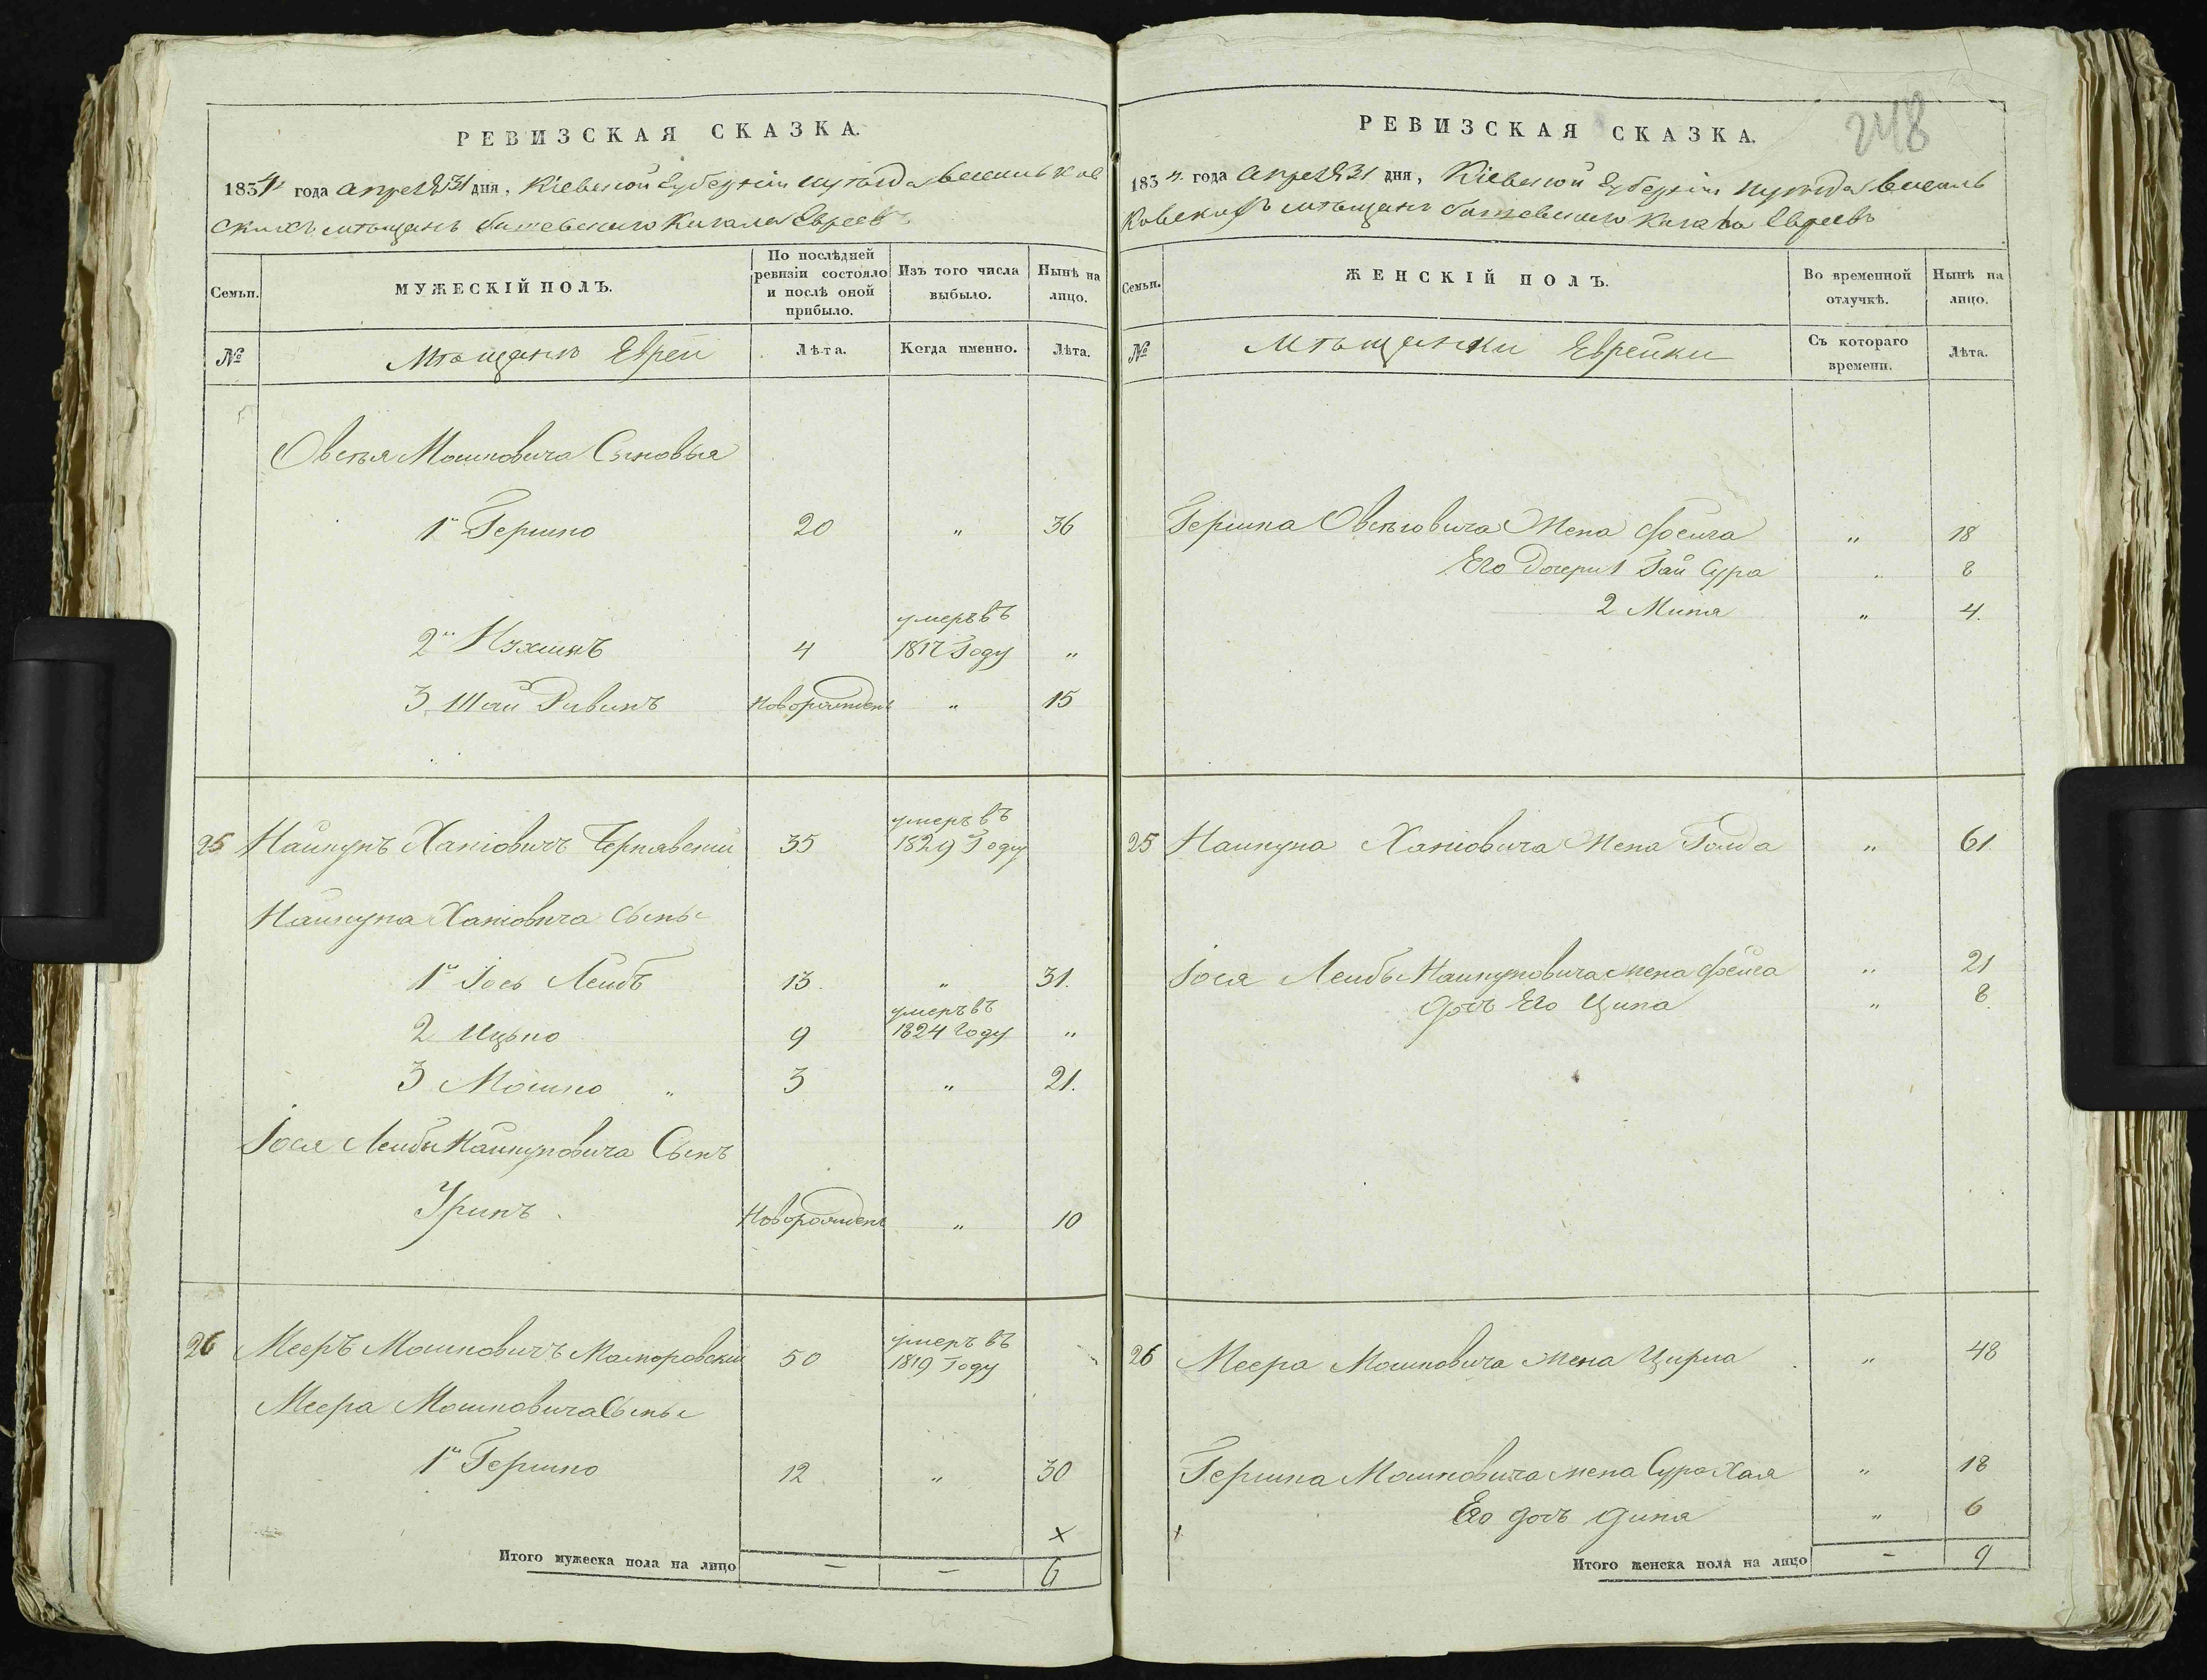 РЕВИЗСКАЯ СКАЗКА.
1834 года апреля 31 дня, Кіевской Губерніи уѣзда Васильков
скихъ мѣщанъ Кагала Евреевъ
Семьи.
МУЖЕСКІЙ ПОЛЪ.
По послѣдней ревизіи состояло и послѣ оной прибыло.
Изъ того числа выбыло.
Нынѣ на лицо.
№
Мѣщане Евреи
Лѣта.
Когда именно.
Лѣта.
Овсѣя Мошковича Сыновья
1й Гершко 20 " 36
умеръ въ
2й Нухимъ 4 1817 Году "
3 Шай Рувинъ Новорожденъ " 15
умеръ въ
25 Ханіовичъ Чернявскій 35 1829 Году
Ханіовича Сыны
1й Іось Лейбъ 13. " 31.
умеръ въ
2 Ицько 9 1824 Году "
3 Мошко " 3 " 21.
Іося Лейбы Сынъ
Новорожденъ " 10
умеръ въ
26 Мееръ Мошковичъ 50 1819 Году
Меера Мошковича Сыны
1й Гершко 12 " 30
x
Итого мужеска пола на лицо — — 6
248
РЕВИЗСКАЯ СКАЗКА.
1834 года апреля 31 дня, Кіевской Губерніи уѣзда Василь
ковскихъ мѣщанъ Кагала Евреевъ
Семьи.
ЖЕНСКІЙ ПОЛЪ.
Во временной отлучкѣ.
Нынѣ на лицо.
№
Мѣщанки Еврейки
Съ котораго времени.
Лѣта.
Гершка Овсѣевича Жена Фейга " 18
Его дочери 1 Сура " 8
2 Миня " 4.
25 Ханіовича Жена Голда " 61.
Іося Лейбы жена Фейга " 21
дочь Его Ципа " 8.
26 Меера Мошковича жена Цирля " 48
Гершка Мошковича жена Сура Хая " 18
Его дочь Дина " 6
x
Итого женска пола на лицо — 9